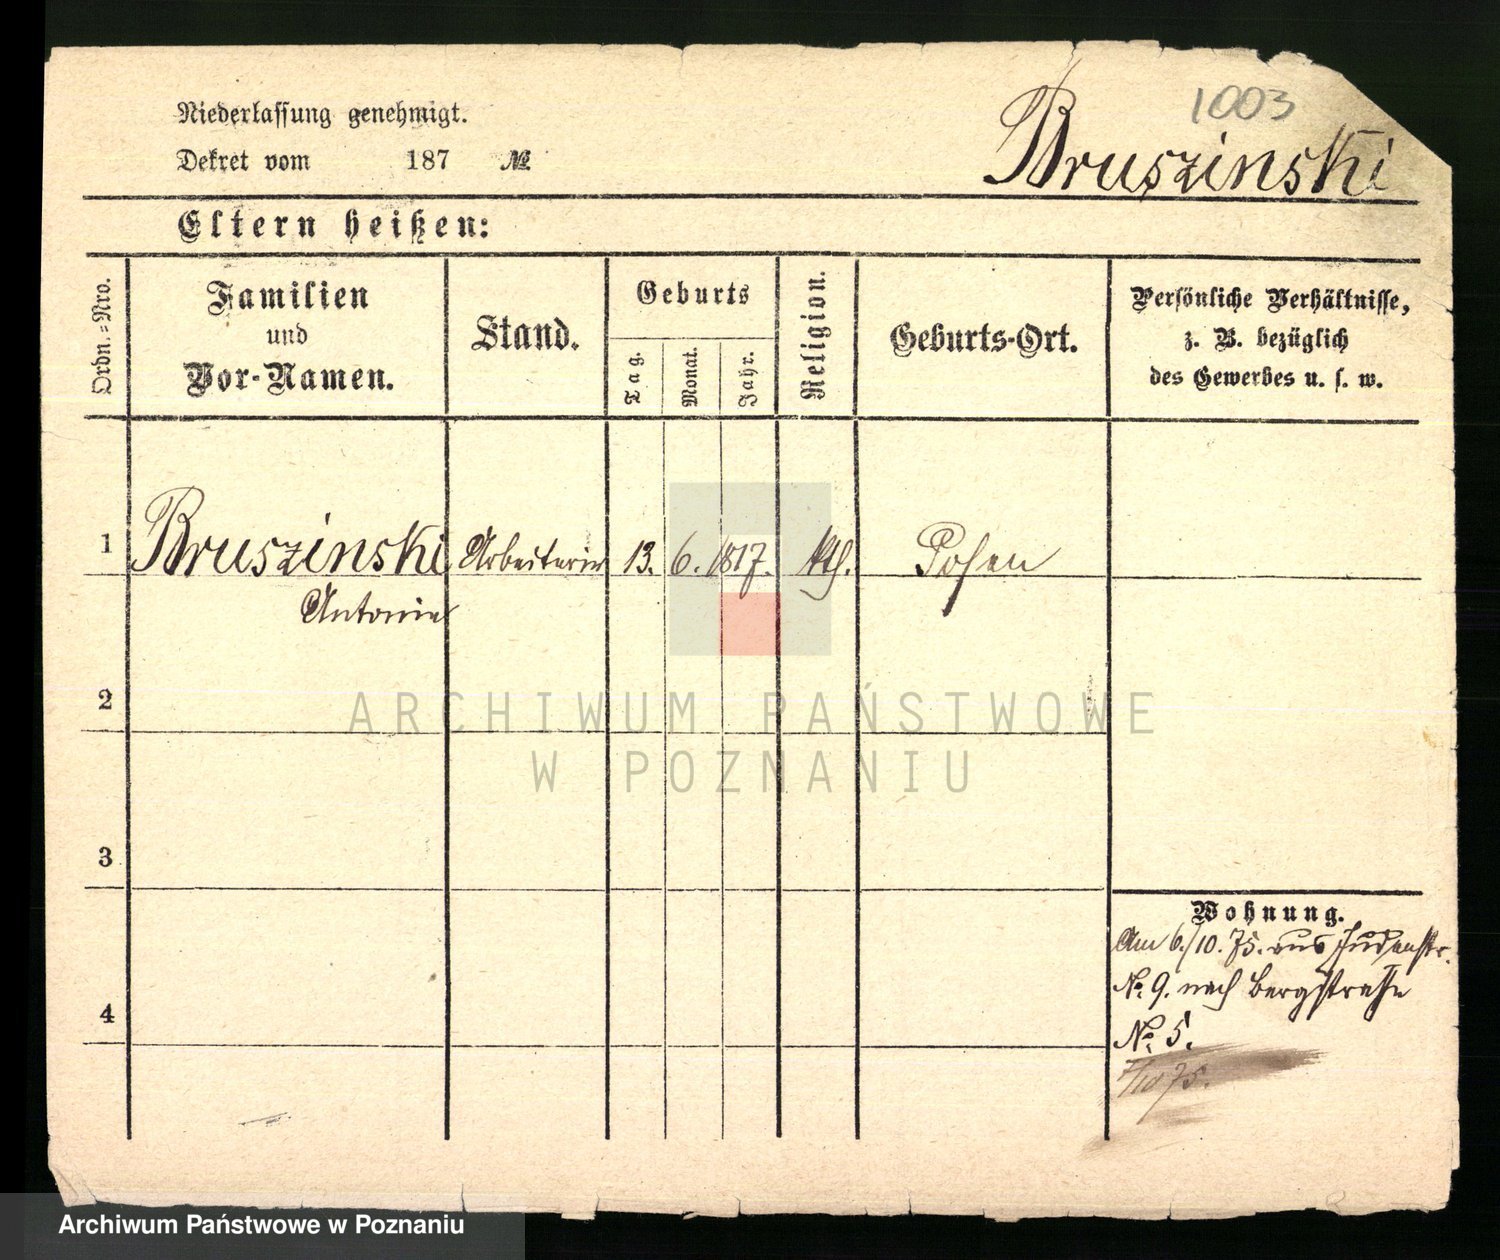 1003
Niederlassung genehmigt.
Dekret vom 187 №
Bruszinski
Eltern heißen:
Ordn.=Nro.
Familien
und
Vor-Namen.
Stand.
Geburts
Tag.
Monat.
Jahr.
Religion.
Geburts-Ort.
Persönliche Verhältnisse,
z. B. bezüglich
des Gewerbes u. s. w.
1 Bruszinski Arbeiterin 13. 6. 1817. kth. Posen
Antonie
2
ARCHIWUM PAŃSTWOWE
W POZNANIU
3
Wohnung.
Am 6./10. 75. aus Judenstr.
No. 9. nach Bergstrasse
No. 5.
4
7/10 75.
Archiwum Państwowe w Poznaniu